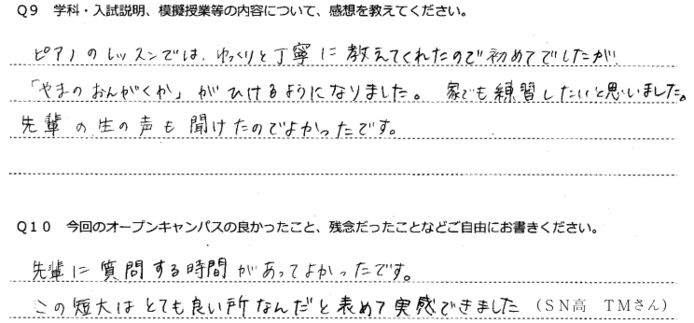 Q9　学科・入試説明、模擬授業等の内容について、感想を教えてください。
ピアノのレッスンでは、ゆっくりと丁寧に教えてくれたので初めてでしたが、
「やまのおんがくか」がひけるようになりました。家でも練習したいと思いました。
先輩の生の声も聞けたのでよかったです。
Q10　今回のオープンキャンパスの良かったこと、残念だったことなどご自由にお書きください。
先輩に質問する時間があってよかったです。
この短大はとても良い所なんだと表めて実感できました（SN高　TMさん）